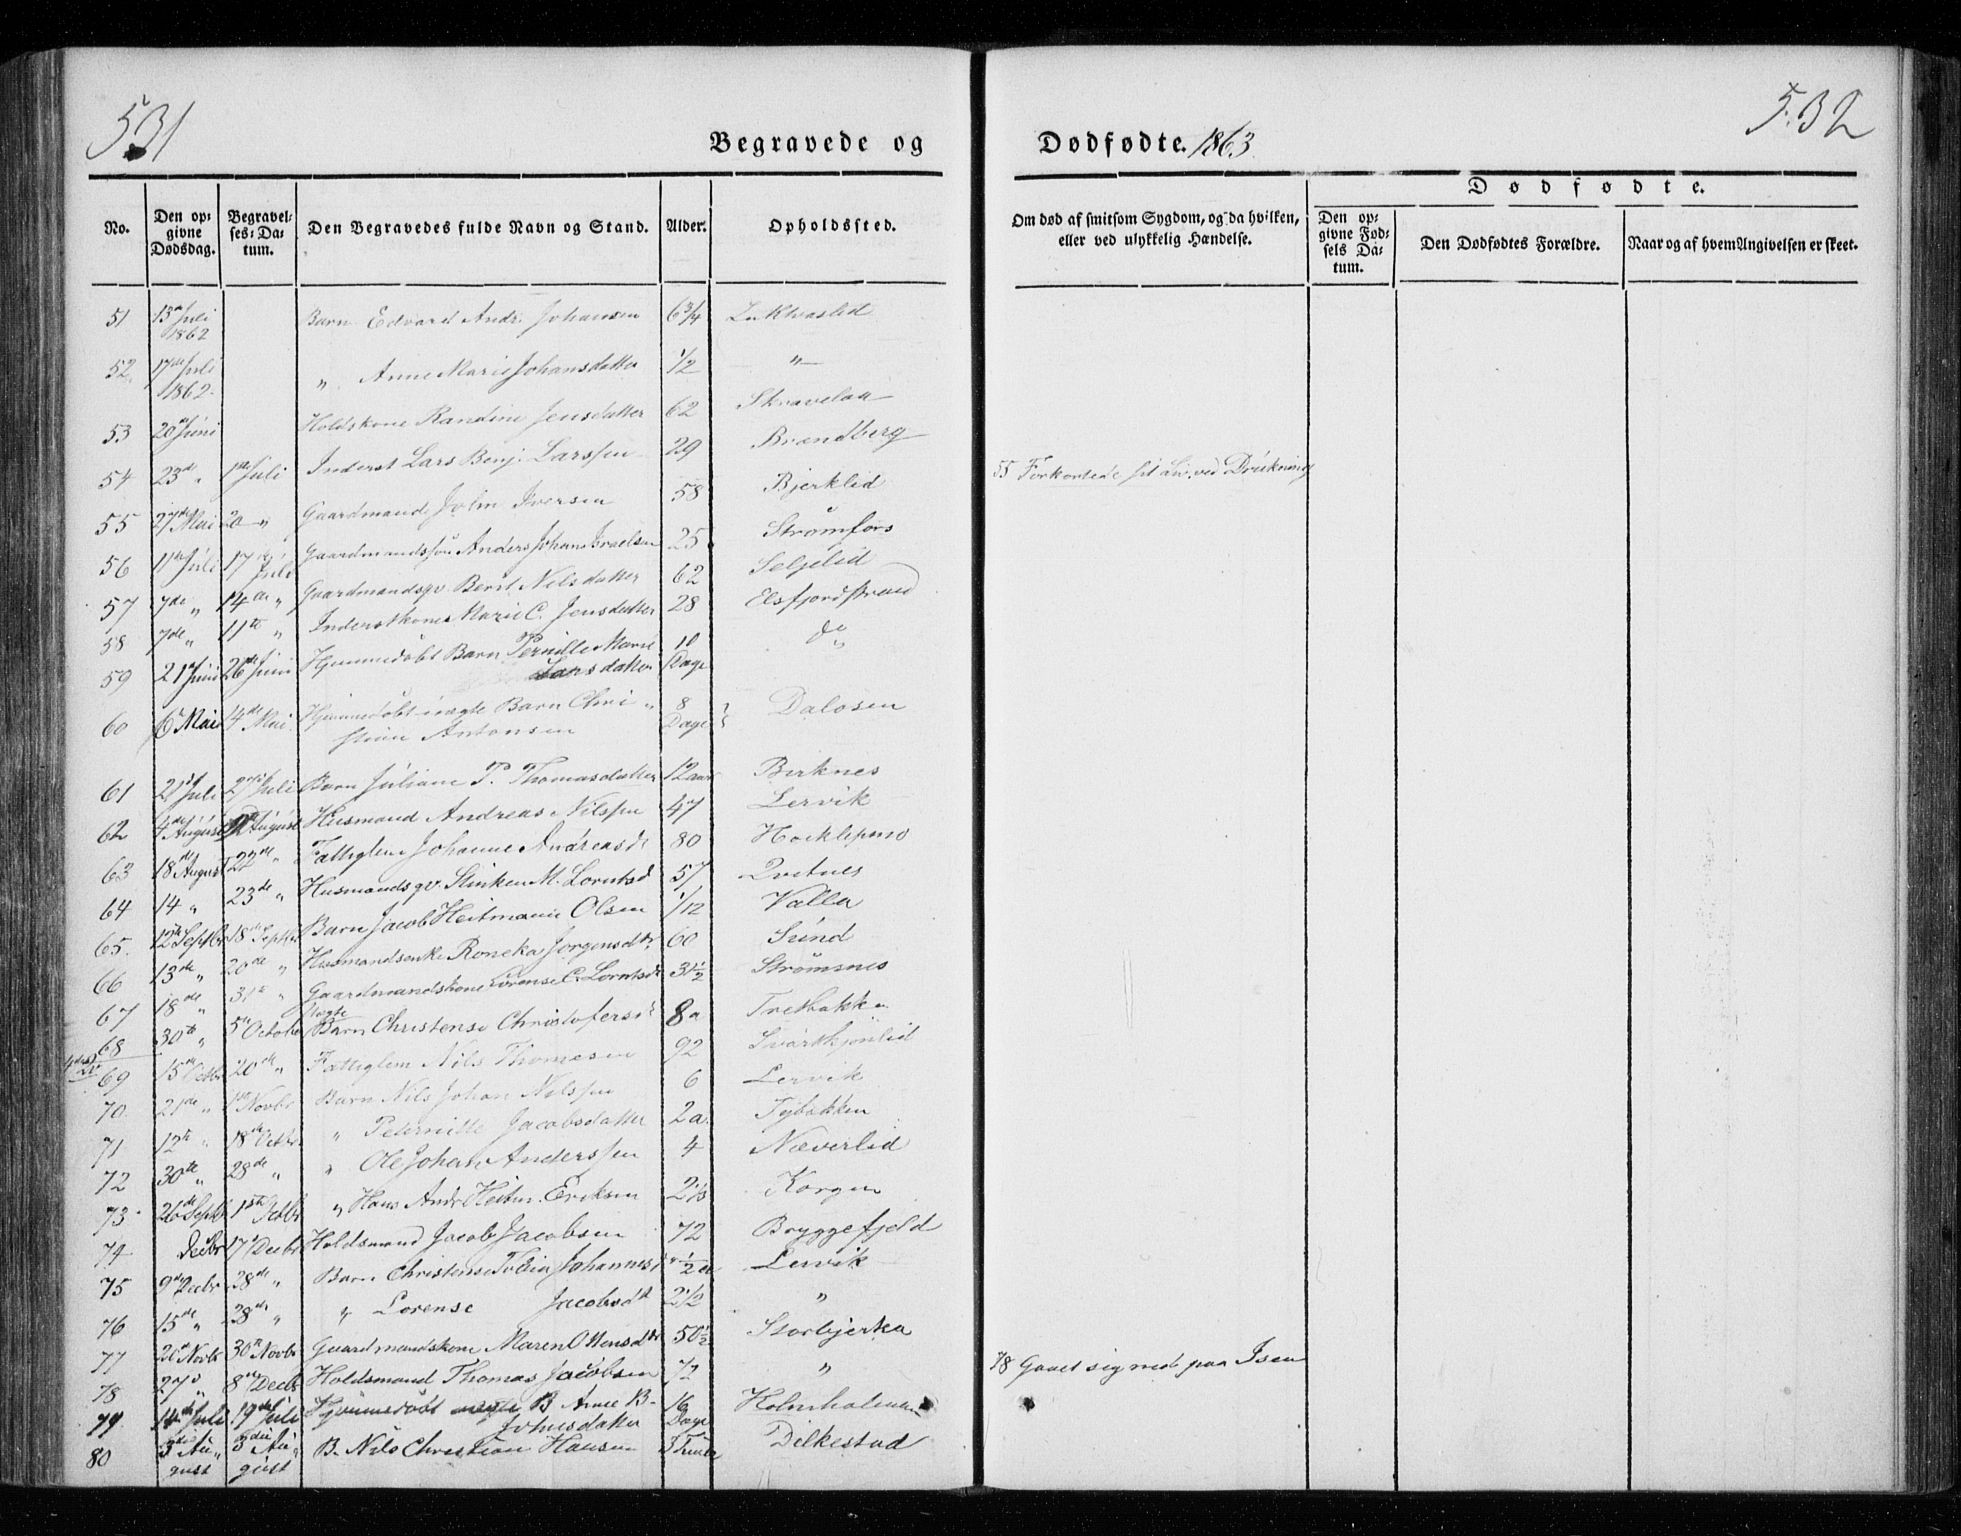 531
Begravede og
Dødfødte. 1863.
532
No.
Den opgivne Dødsdag.
Begravelses-Datum.
Den Begravedes fulde Navn og Stand.
Alder.
Opholdssted.
Om død af smitsom Sygdom, og da hvilken, eller ved ulykkelig Hændelse.
Dødfødte.
Den opgivne Fødsels Datum.
Den Dødfødtes Forældre.
Naar og af hvem Angivelsen er skeet.
51 13de Juli 1862 Barn Edvard Andr. Johansen 6 3/4
52 17de Juli 1862. " Anne Marie Johansdatter 1/2 "
53 20de Juni Holdskone Randine Jensdatter 62
54 23de " 1ste Juli Inderst Lars Benj. Larssen 29 Brændberg
55 27de Mai 20 " Gaardmand John Iversen 58 Bjerklid
55 Forkortede sit Liv ved Drukning
56 11te Juli 17de Juli Gaardmandssøn Anders Johan Israelsen 25 Strømfors
57 7de " 14de " Gaardmandsgv. Berit Nilsdatter 62 Seljelid
58 7de " 11te " Inderstkone Marie C. Jensdatter 28 Elsfjordstrand
59 21de Juni 26de Juni Hjemmedøbt Barn Pernille Marie Larsdatter 10 Dage do "
60 6te Mai 14de Mai Hjemmedøbt uægte Barn Christian Antonsen 8 Dage Dalosen
61 21de Juli 27de Juli Barn Juliane P. Thomasdatter 12 aar Birknes
62 4de August August Husmand Andreas Nilssen 47 Lervik
63 18de August 22de " Fattiglem Johanne Andreasdt 80
64 14 " 23de " Husmandsgv. M. Lorntsd 57 Qvitnes
65. 12te Septbr 18de Septbr Barn Jacob Heitmann Olsen 1/12 Valla
66 13de " 20de " Husmandsenke Roneka Jørgensdtr. 60 Sund
67 18de " 31te " Gaardmandskone Lorense C. Lorntsdt 31 1/2 Strømsnes
68 30te " 5te October Uægte Barn Christense Christofersdt 8 a Tretbakken
69 15de Octbr 20de " Fattiglem Nils Thomesen 92
70. 21de " 1ste Novbr Barn Nils Johan Nilssen 6 Lervik
71 12te " 18de Octbr " Peternille Jacobsdatter 2 a.
72 30te " 28de " " Ole Johan Anderssen 4 Næverlid
73 26de Septbr 1ste Octbr " Hans Andr Heitm. Eriksen 2 1/3 Korgen
74 Decbr 17de Decbr Holdsmand Jacob Jacobsen 72 Bryggefjeld
75 9de Decbr 28de " Barn Christense Johannesdt 1/2 a Lervik
76 15de " 28de " " Lorense Jacobsdt 2 1/2 "
77 20de Novbr 30te Novbr Gaardmandskone Maren Ottensdtr 50 1/2 Storbjerka
78 27de " 8de Decbr Holdsmand Thomas Jacobsen 72 "
78 Gaaet sig ned paa Isen
79 14de Juli 19de Juli Hjemmedøbt B. Anne B. Johnsdatter 16 Dage Holmholmen
80 3die August 3die August B. Nils Christian Hansen 3 Timer Dilkestad